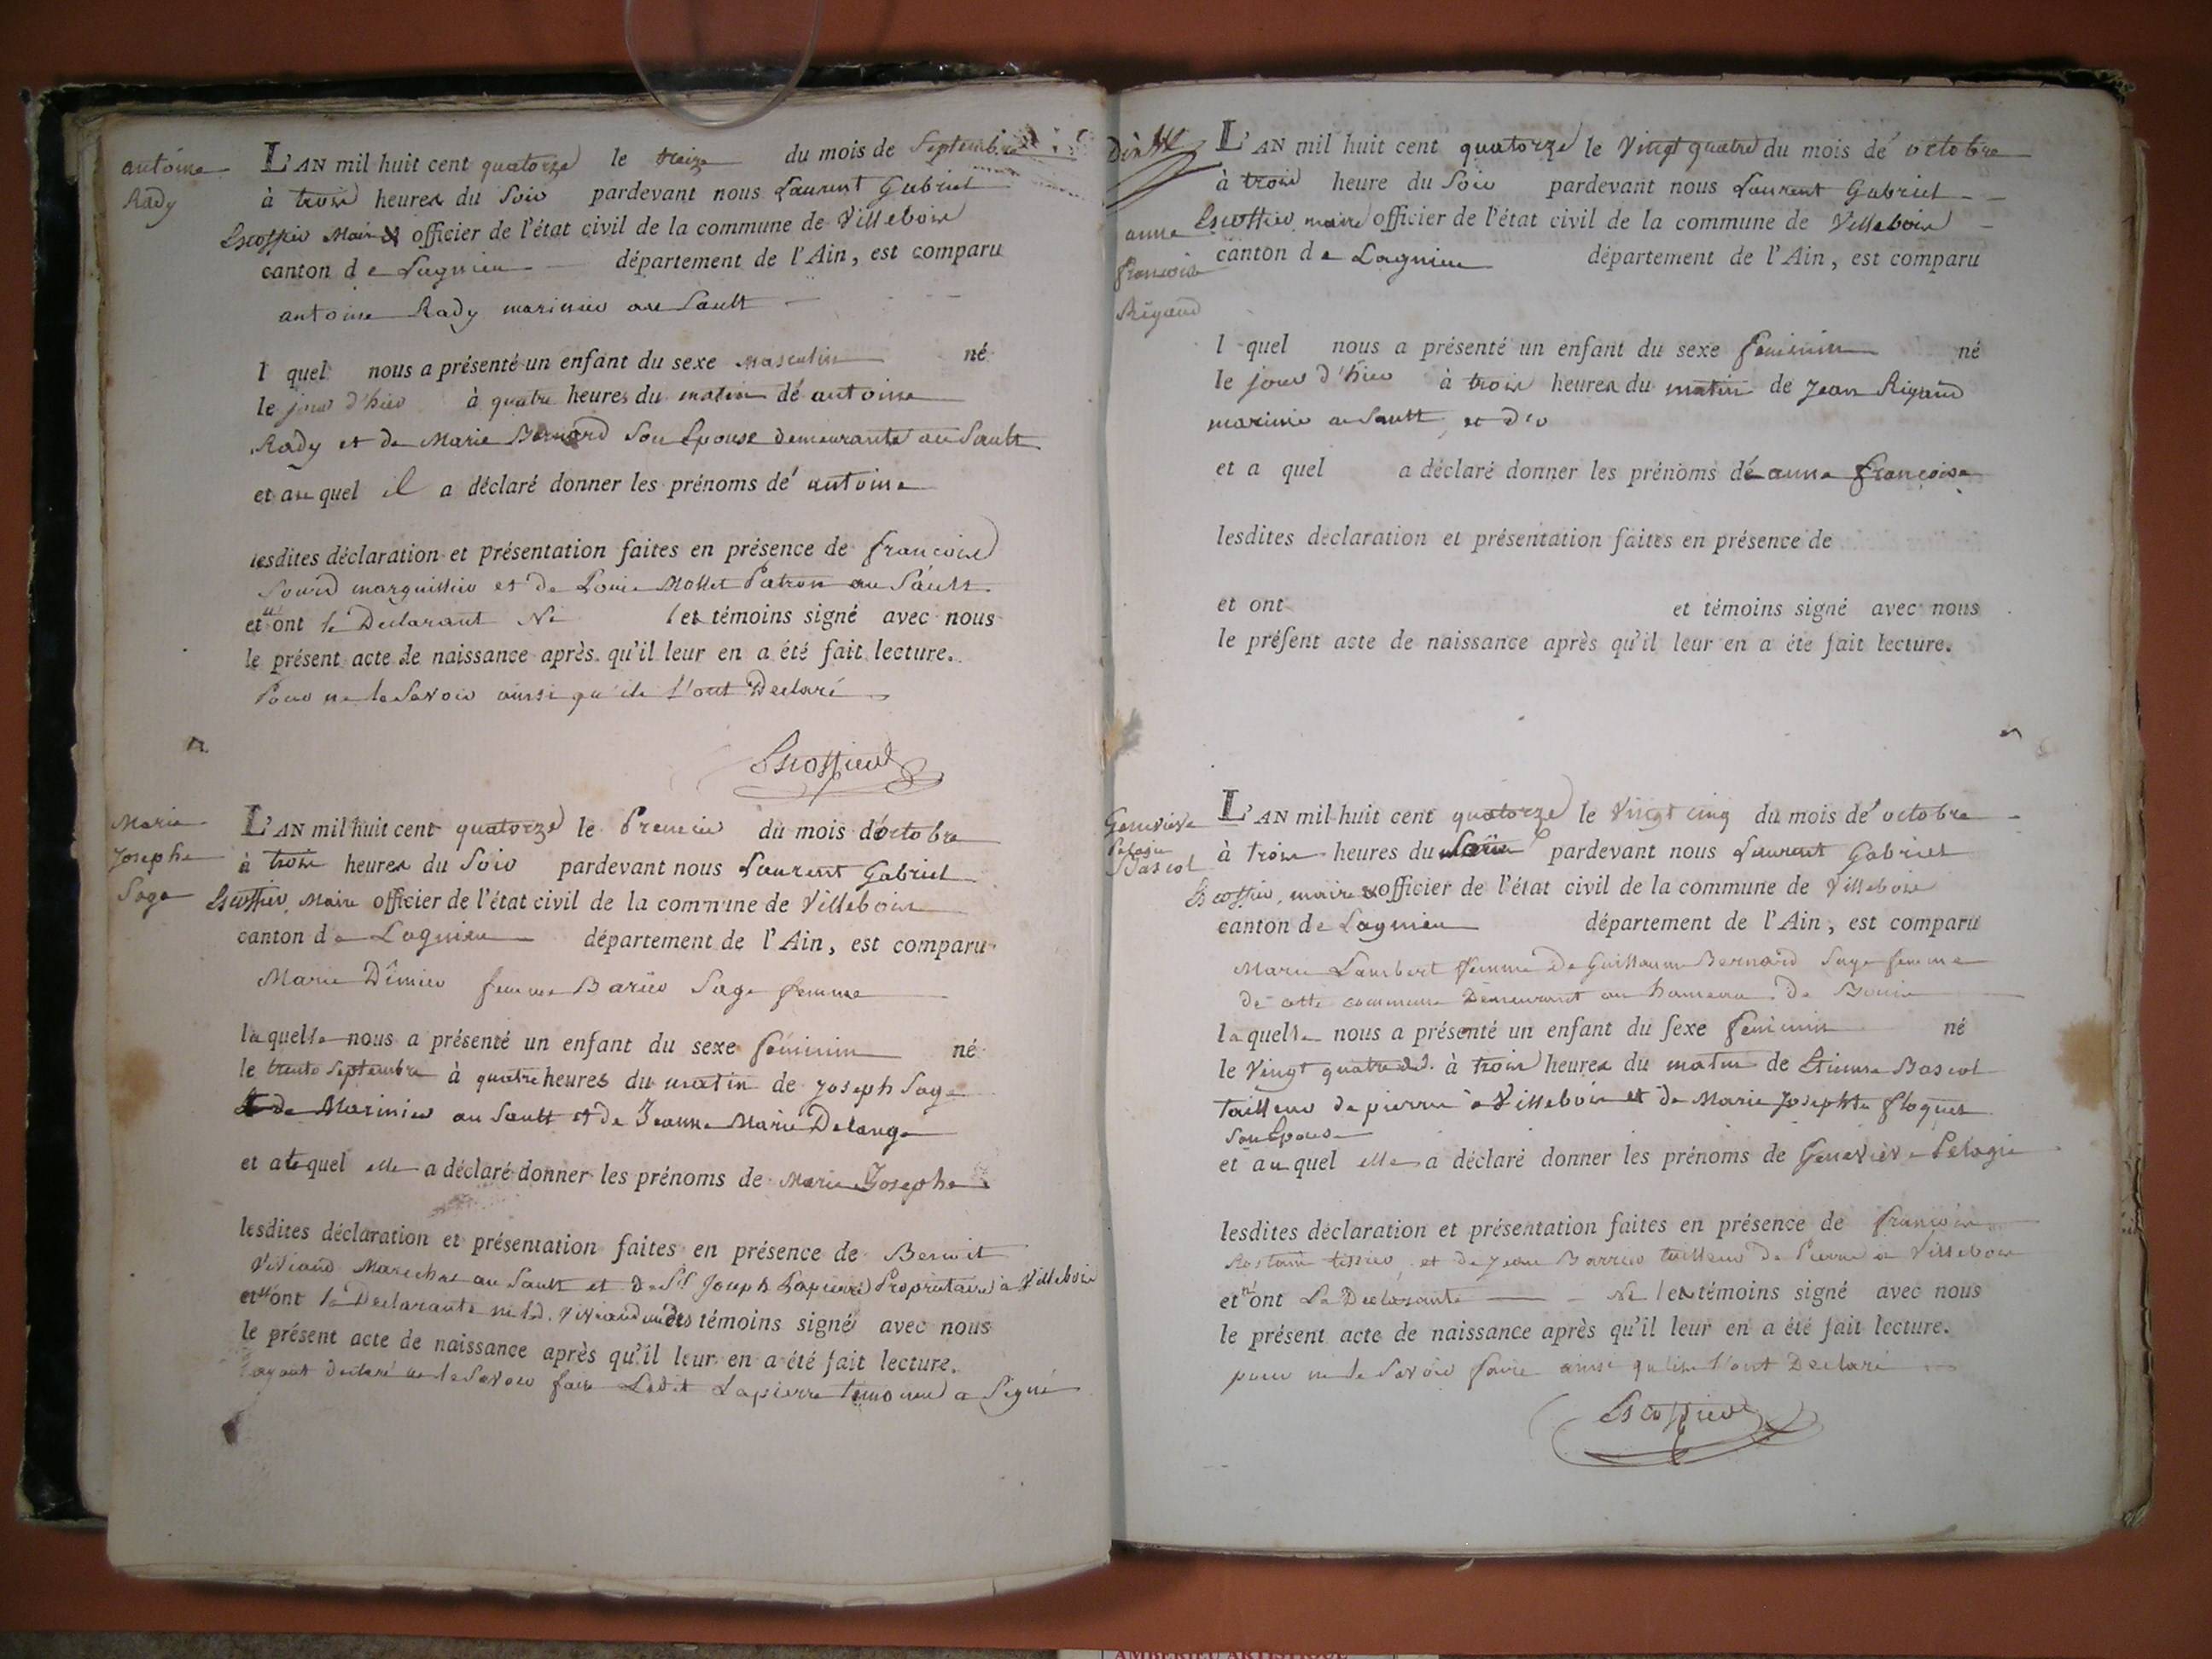 antoine
Rady
L'AN mil huit cent quatorze le treize du mois de Septembre
à trois heures du Soir pardevant nous Laurent Gabriel
Escoffier Maire officier de l'état civil de la commune de Villebois
canton de Lagnieu département de l'Ain, est comparu
antoine Rady marinier au Sault
l quel nous a présenté un enfant du sexe Masculin né
le jour d'hier à quatre heures du matin de antoine
Rady et de Marie Bernard Son Epouse demeurants au Sault
et au quel il a déclaré donner les prénoms de antoine
lesdites déclaration et présentation faites en présence de francois
Sourd marguillier et de Louis Mollet Patron au Sault
et n'ont le Declarant Ni les témoins signé avec nous
le présent acte de naissance après qu'il leur en a été fait lecture.
Pour ne le Savoir ainsi qu'ils l'ont Declaré
Escoffier
Marie
Josephe
Sage
L'AN mil huit cent quatorze le Premier du mois d'octobre
à trois heures du Soir pardevant nous Laurent Gabriel
Escoffier, Maire officier de l'état civil de la commune de Villebois
canton de Lagnieu département de l'Ain, est comparu
Marie Dimier femme Barier Sage femme
laquelle nous a présenté un enfant du sexe féminin né
le trente Septembre à quatre heures du matin de Joseph Sage
Marinier au Sault et de Jeanne Marie Delange
et a quel elle a déclaré donner les prénoms de Marie Josephe
lesdites déclaration et présentation faites en présence de Benoit
Viviand Marechal au Sault et de Sr Joseph Lapierre Propriétaire à Villebois
et n'ont la Declarante ni led. Viviand un des témoins signé avec nous
le présent acte de naissance après qu'il leur en a été fait lecture.
ayant declaré ne le Savoir faire Ledit Lapierre temoin a Signé
anna
francoise
Rigaud
L'AN mil huit cent quatorze le Vingt quatre du mois de octobre
à trois heure du Soir pardevant nous Laurent Gabriel
Escoffier, maire officier de l'état civil de la commune de Villebois
canton de Lagnieu département de l'Ain, est comparu
l quel nous a présenté un enfant du sexe feminin né
le jour d'hier à trois heures du matin de Jean Rigaud
marinier au Sault, et d'
et a quel a déclaré donner les prénoms de anna françoise
lesdites déclaration et présentation faites en présence de
et ont et témoins signé avec nous
le présent acte de naissance après qu'il leur en a été fait lecture.
Genevieve
Pelagie
Bascol
L'AN mil huit cent quatorze le Vingt cinq du mois de octobre
à trois heures du pardevant nous Laurent Gabriel
Escoffier, maire officier de l'état civil de la commune de Villebois
canton de Lagnieu département de l'Ain, est comparu
Marie Lambert femme de Guillaume Bernard Sage femme
de cette commune Demeurant au hameau de Bouis
laquelle nous a présenté un enfant du sexe féminin né
le Vingt quatre d. à trois heures du matin de Etienne Bascol
tailleur de pierre à Villebois et de Marie Josephte floquet
Son Epouse
et au quel elle a déclaré donner les prénoms de Geneviève Pelagie
lesdites déclaration et présentation faites en présence de francois
Rostain tissier, et de Jean Barrier tailleur de Pierre a Villebois
et n'ont La Declarante Ni les témoins signé avec nous
le présent acte de naissance après qu'il leur en a été fait lecture.
pour ne le Savoir faire ainsi qu'ils l'ont Declaré
Escoffier